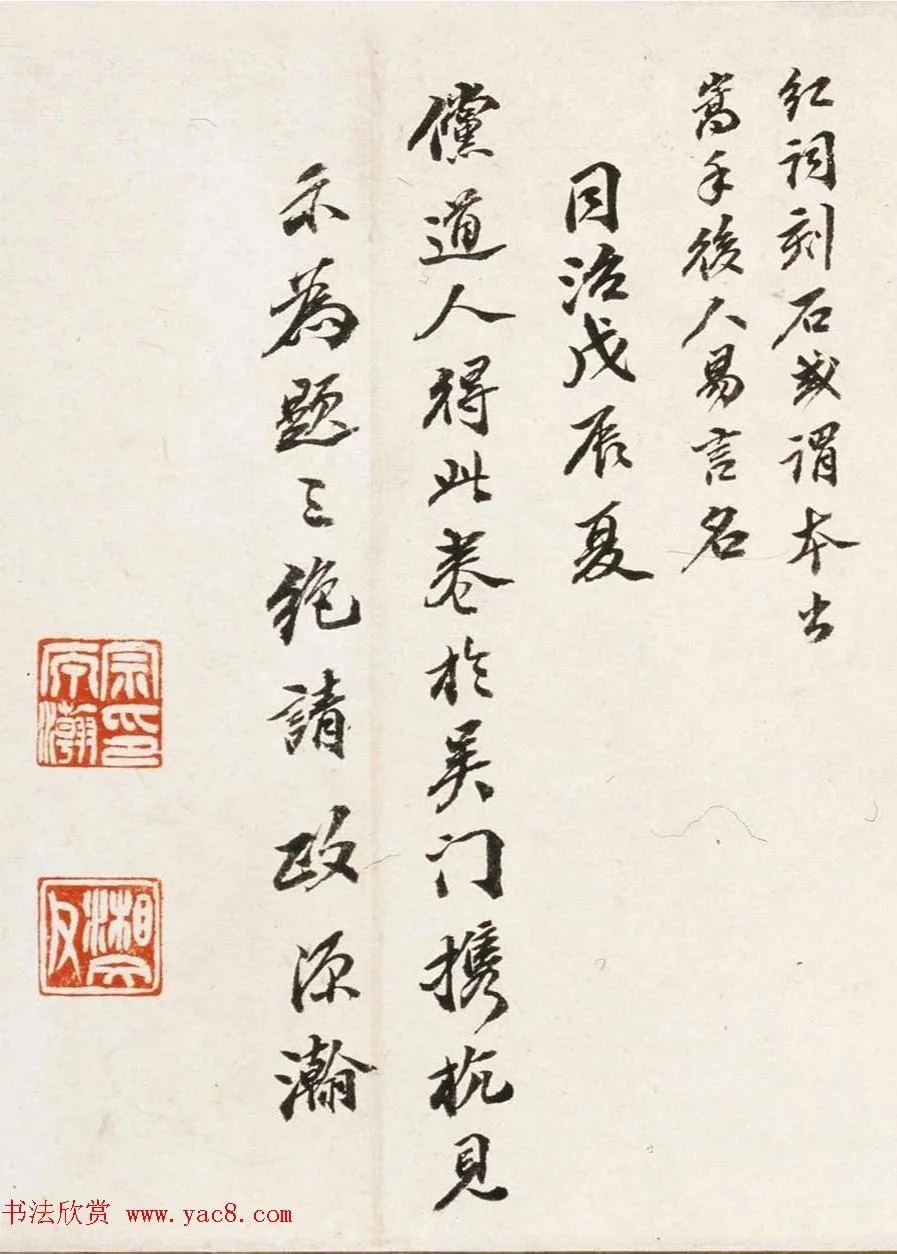 红词刻石或谓本出
嵩手後人易言名
同治戊辰夏
儻道人得此卷於吴门携杭见
示為题三绝請政源瀚
宗印
源瀚
湘文
书法欣赏 www.yac8.com